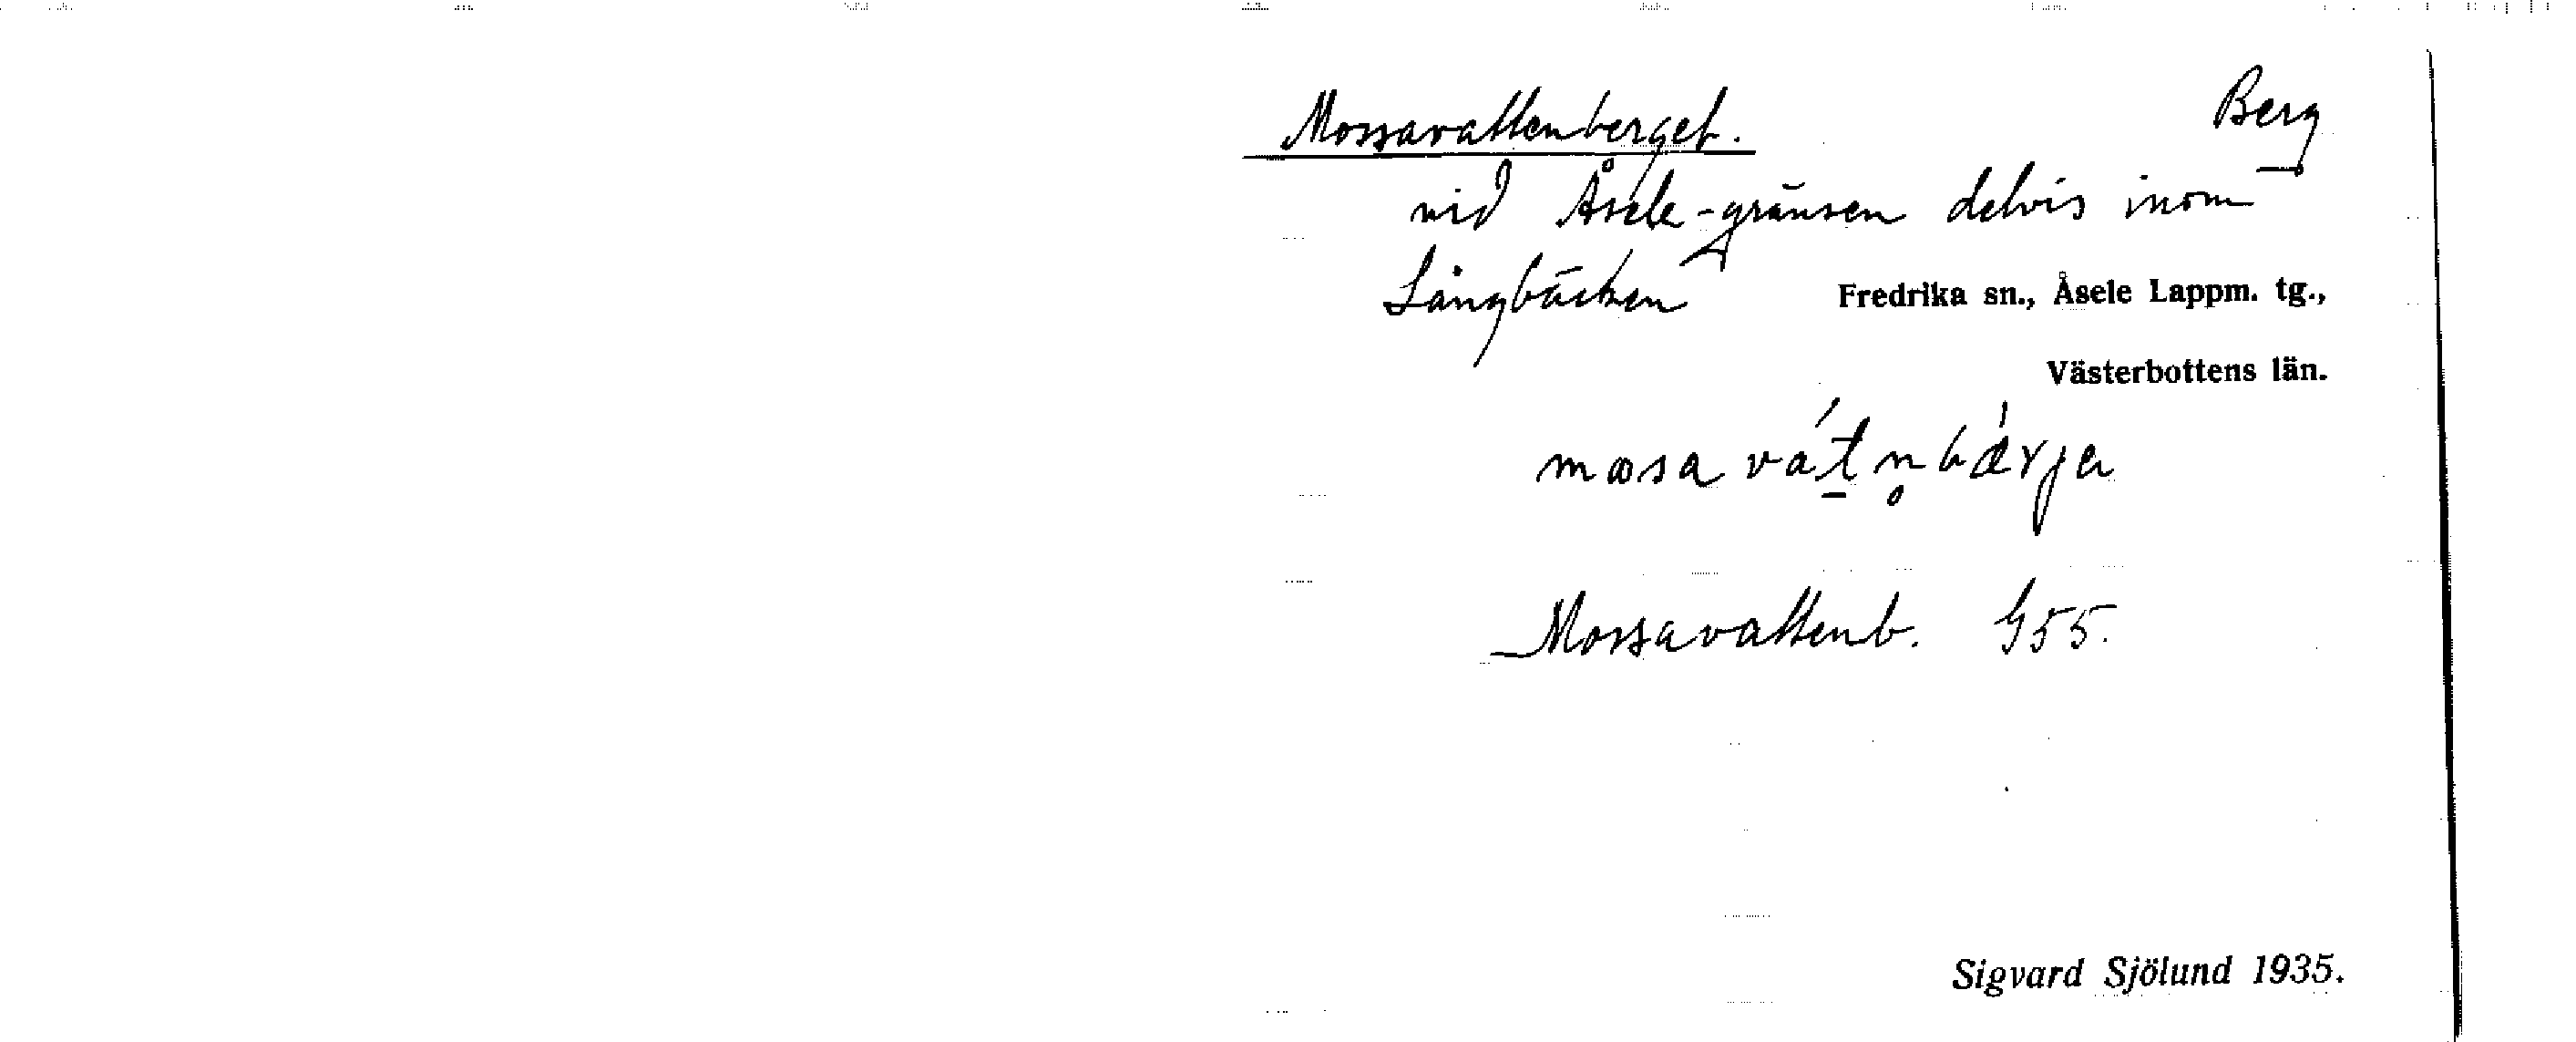 Mossavattenberget. Berg
vid Åsele-gränsen delvis inom
Långbäcken Fredrika sn., Åsele Lappm. tg.,
Västerbottens län.
Mossavattenb. G55.
Sigvard Sjölund 1935.